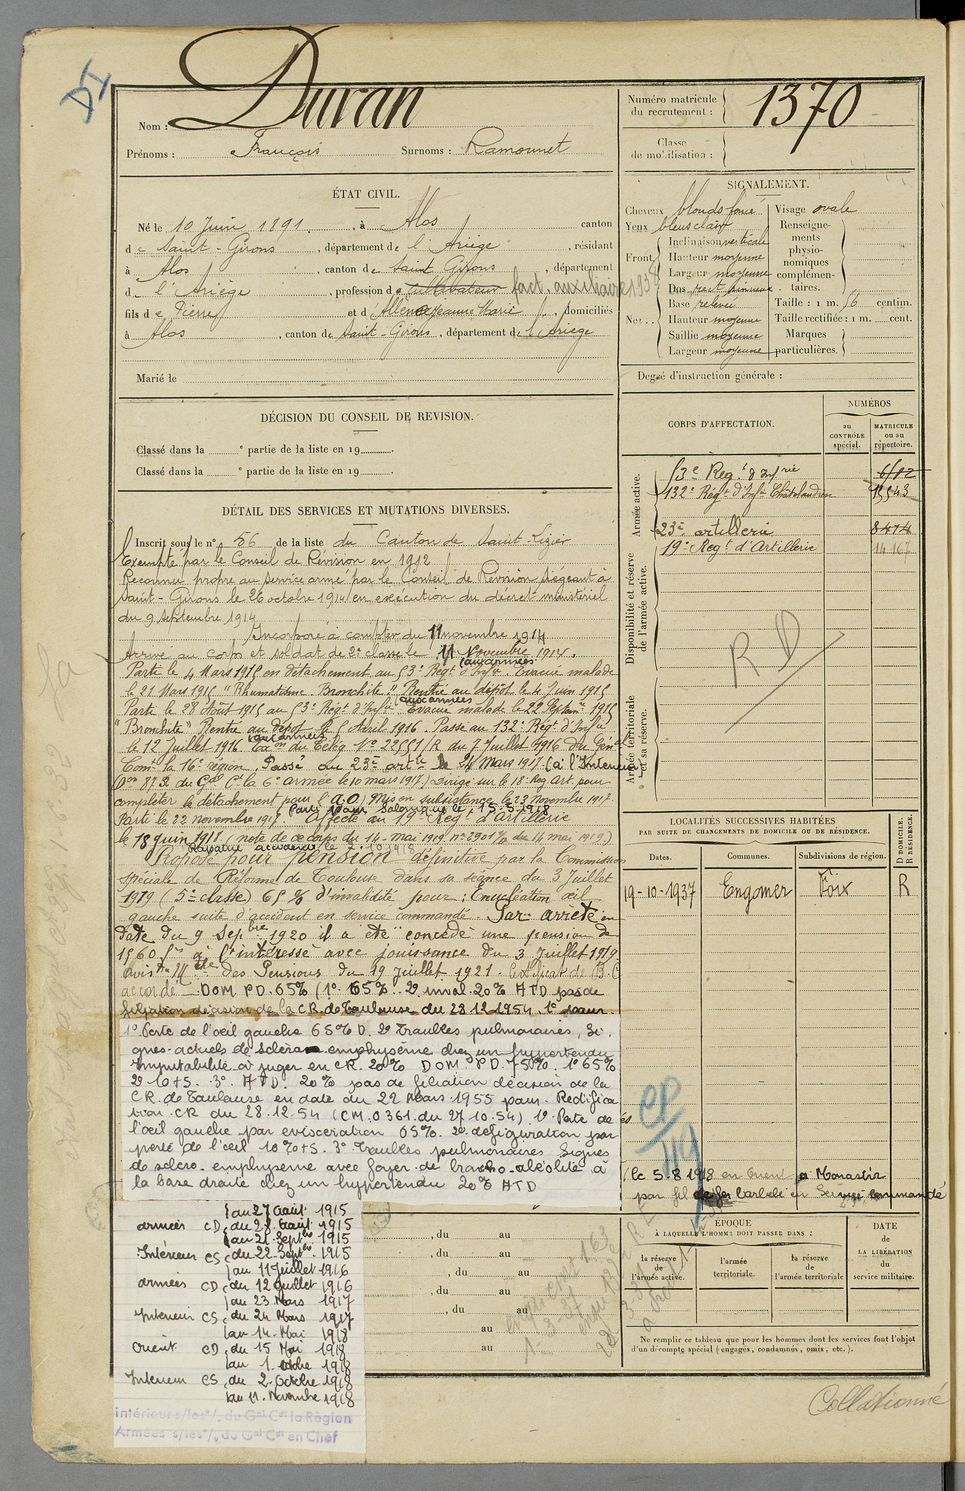 Nom : Duran
Prénoms : François Surnoms : Ramounet
Numéro matricule du recrutement : 1370
Classe de mobilisation :
ÉTAT CIVIL.
Né le 10 Juin 1891, à Alos canton
de Saint-Girons, département de l'Ariège, résidant
à Alos, canton de Saint Girons, département
de l'Ariège, profession de cultivateur fact. auxiliaire 1938
fils de Pierre et d'Allène Jeanne Marie, domiciliés
à Alos, canton de Saint-Girons, département de l'Ariège
Marié le
SIGNALEMENT.
Cheveux blonds foncé Visage ovale
Yeux bleus clairs
Front Inclinaison verticale
Hauteur moyenne
Largeur moyenne
Nez Dos rect.
Base relevée
Hauteur moyenne
Saillie moyenne
Largeur moyenne
Renseignements physionomiques complémentaires.
Taille : 1 m. 76 centim.
Taille rectifiée : 1 m. cent.
Marques particulières.
Degré d'instruction générale :
DÉCISION DU CONSEIL DE REVISION.
Classé dans la e partie de la liste en 19 .
Classé dans la e partie de la liste en 19 .
DÉTAIL DES SERVICES ET MUTATIONS DIVERSES.
Inscrit sous le n° 56 de la liste du Canton de Saint-Lizier
Exempté par le Conseil de Révision en 1912
Reconnu propre au service armé par le Conseil de Révision siégeant à
Saint-Girons le 26 octobre 1914 en exécution du décret ministériel
du 9 septembre 1914
Incorporé à compter du 11 novembre 1914
Arrivé au corps et soldat de 2e classe le 11 Novembre 1914.
(aux armées
Parti le 4 Mars 1915 en détachement au 53e Régt d'Infie Evacué malade
le 21 Mars 1915 "Rhumatisme Bronchite." Rentré au dépôt le 4 Juin 1915
aux armées
Parti le 28 Août 1915 au 53e Régt d'Infie Evacué malade le 22 Septembre 1915
"Bronchite" Rentré au dépôt le 5 Avril 1916. Passé au 132e Régt d'Infie
aux armées
le 12 Juillet 1916. Exon du Télég. N° 22551/R du 7 Juillet 1916 du Génal
Comt la 16e région. Passé au 23e artie le 24 Mars 1917 (à l'Intérieur
Don 8732 du Gal Ct la 6e armée le 10 mars 1917) Dirigé sur le 18e Rég. Art. pour
compléter le détachement pour l'A.O. Mis en subsistance le 23 novembre 1917
Parti pour Salonique le 15.5.1918
Parti le 22 novembre 1917. Affecté au 19e Régt d'Artillerie
le 18 juin 1918 (note de ce corps du 14 mai 1919 n° 2901/2 du 14 mai 1919)
Rapatrié le 2.10.1918
Proposé pour pension définitive par la Commission
spéciale de Réforme de Toulouse dans sa séance du 3 Juillet
1919 (5e classe) 65 % d'invalidité pour : Enucléation œil
gauche suite d'accident en service commandé. Par arrêté en
date du 9 Sepbre 1920 il a été concédé une pension de
1560 frs à l'intéressé avec jouissance du 3 Juillet 1919
Avis Mtel des Pensions du 19 Juillet 1921. Certificat de B.C
accordé DOM P.D. 65% (1° 65% 2° inval. 20% ATD pas de
filiation décision de la C.R. de Toulouse du 28 12 1954 1° pour
1° Perte de l'œil gauche 65% D. 2° Troubles pulmonaires, Si
gnes actuels de scléro emphysème chez un hypertendu
Imputabilité à juger en CR. 20% DOM. PD. 750%. 1° 65%
2° 10+5. 3°. ATD. 20% pas de filiation décision de la
CR de Toulouse en date du 22 Mars 1955 pour. Rectifica
tion CR du 28.12.54 (CM.0361.du 27.10.54) 1° Perte de
l'œil gauche par eviscération 65%. 2° défiguration par
perte de l'œil 10%+5. 3° Troubles pulmonaires Signes
de scléro-emphysème avec foyer de broncho-alvéolite à
la base droite chez un hypertendu 20% ATD
au 27 Août 1915
armées CD du 28 Août 1915
au 21 Septbre 1915
Intérieur CS du 22 Septbre 1915
au 11 Juillet 1916
armées CD du 12 Juillet 1916
au 23 Mars 1917
Intérieur CS du 24 Mars 1917
au 14 Mai 1918
Orient CD du 15 Mai 1918
au 1. octobre 1918
Intérieur CS du 2. Octobre 1918
au 11. Novembre 1918
Intérieur s/les °/. du Gal Cdt la Région
Armées s/les °/. du Gal Cdt en Chef
, du au
, du au
, du au
, du au
, du au
au
au
CORPS D'AFFECTATION.
NUMÉROS
au CONTRÔLE spécial.
MATRICULE ou au répertoire.
Armée active.
53e Régt d'Infrie
132e Régt d'Infie Chatelaudren
23e artillerie 8414
19e Régt d'Artillerie 14167
Disponibilité et réserve de l'armée active.
RD
Armée territoriale et sa réserve.
LOCALITÉS SUCCESSIVES HABITÉES
PAR SUITE DE CHANGEMENTS DE DOMICILE OU DE RÉSIDENCE.
Dates. Communes. Subdivisions de région. D DOMICILE. R RÉSIDENCE.
19-10-1937 Engomer Foix R
CP
119
Blessé le 5.8.1918 en Orient à Monastir
par fil de fer barbelé en service commandé
ÉPOQUE
À LAQUELLE L'HOMME DOIT PASSER DANS :
la réserve de l'armée active.
l'armée territoriale.
la réserve de l'armée territoriale
DATE DE LA LIBÉRATION du service militaire.
Ne remplir ce tableau que pour les hommes dont les services font l'objet
d'un décompte spécial (engagés, condamnés, omis, etc.).
Collationné